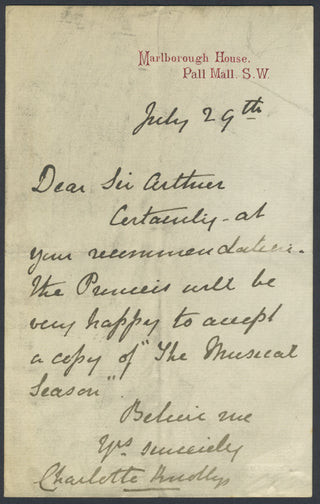 Marlborough House.
Pall Mall. S.W.
July 29th
Dear Sir Arthur
Certainly - at
your recommendation -
the Princess will be
very happy to accept
a copy of "The Musical
Season".
Believe me
Yrs. sincerely
Charlotte Knollys